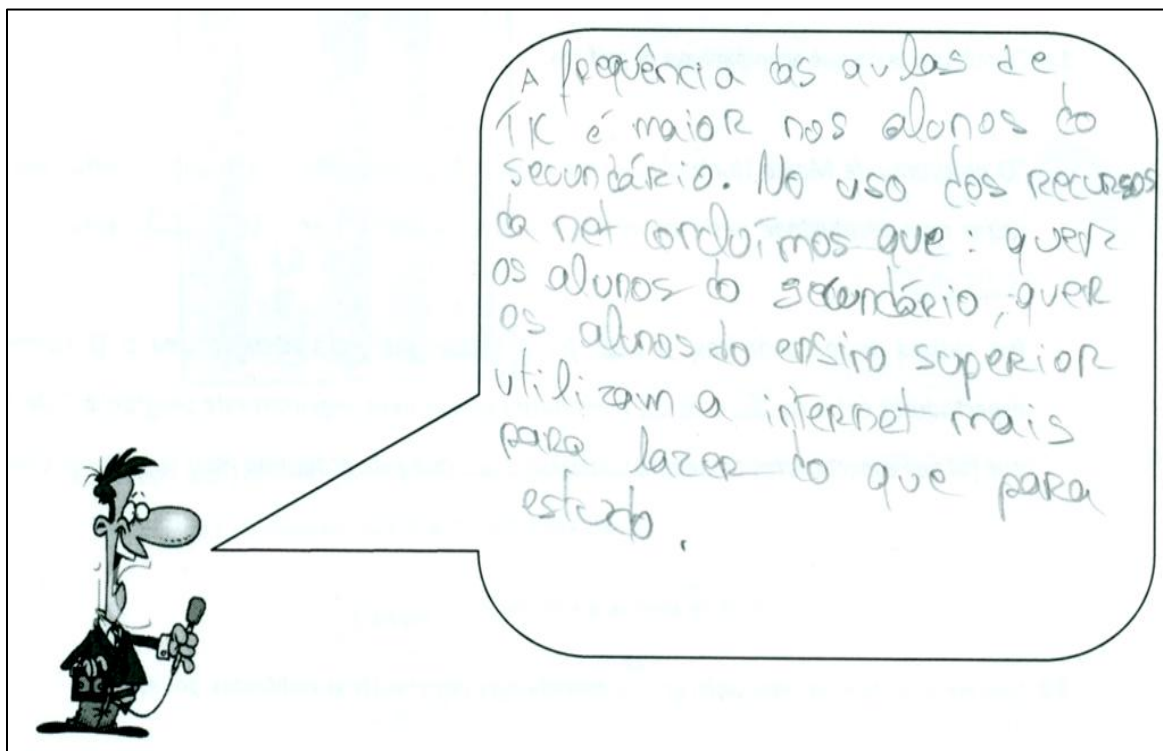 A frequência das aulas de
TIC é maior nos alunos do
secundário. No uso dos recursos
da net concluímos que: quer
os alunos do secundário, quer
os alunos do ensino superior
utilizam a internet mais
para lazer do que para
estudo.